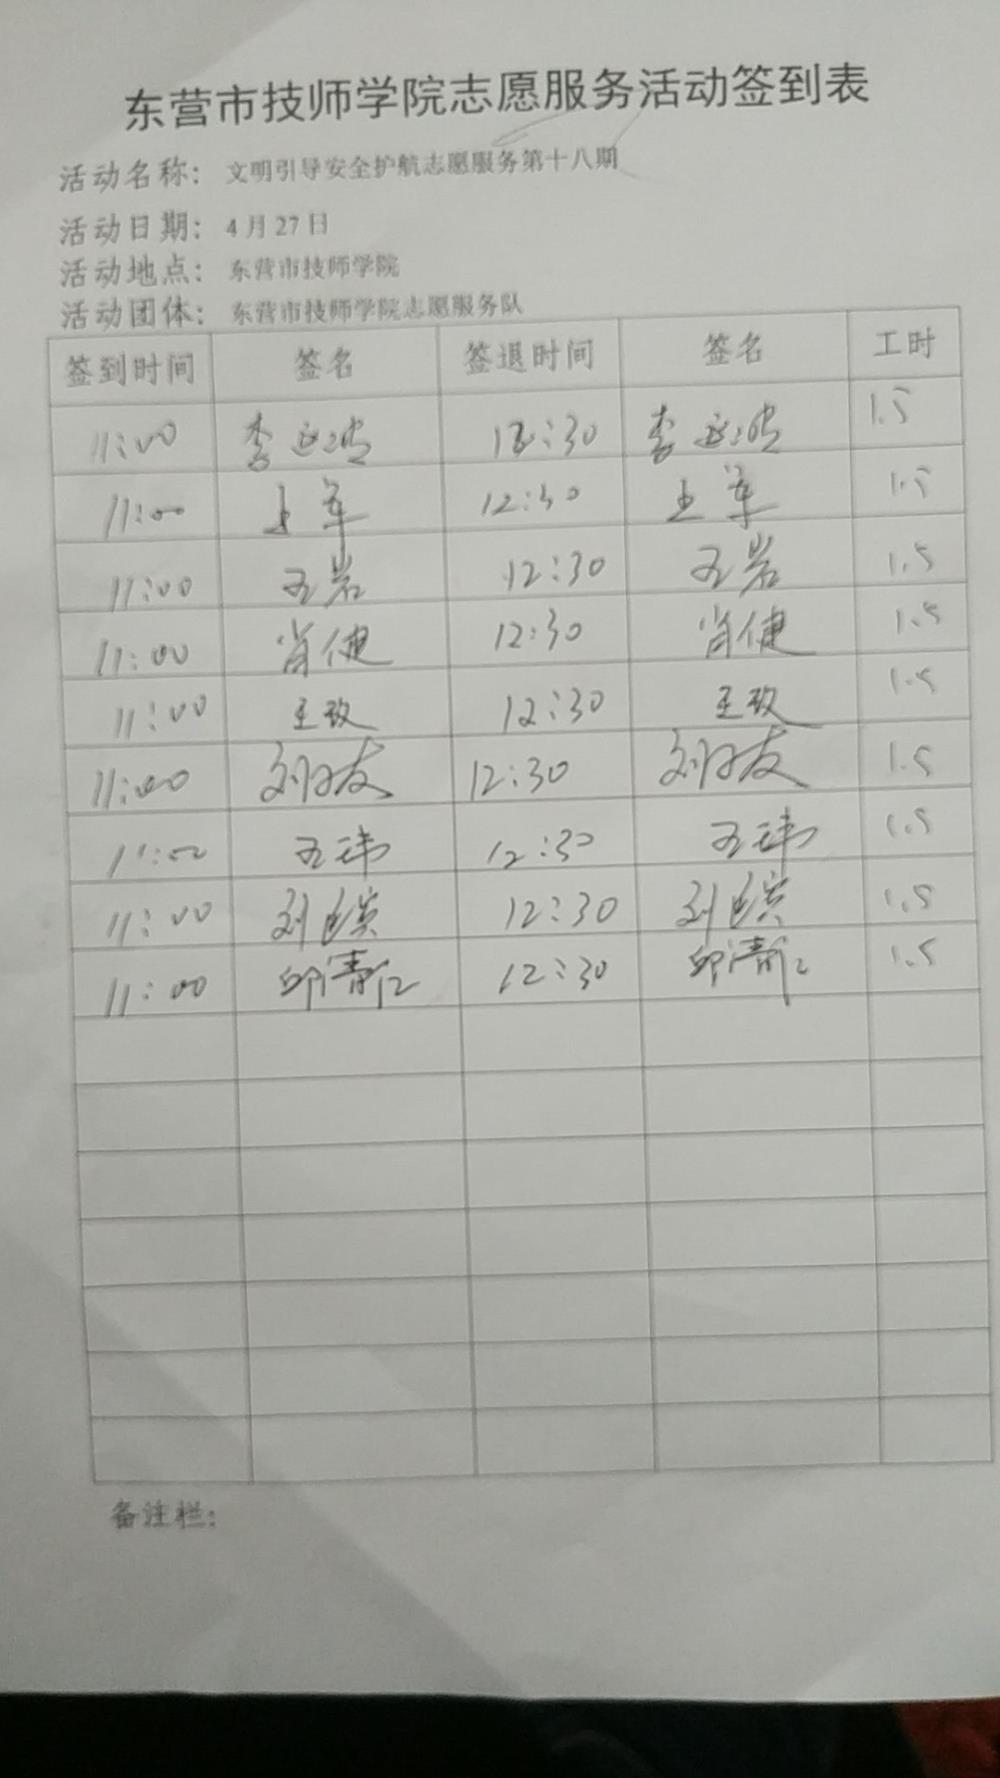 东营市技师学院志愿服务活动签到表
活动名称：文明引导安全护航志愿服务第十八期
活动日期：4月27日
活动地点：东营市技师学院
活动团体：东营市技师学院志愿服务队
签到时间 签名 签退时间 签名 工时
11:00 李延波 12:30 李延波 1.5
11:00 王军 12:30 王军 1.5
11:00 王岩 12:30 王岩 1.5
11:00 肖健 12:30 肖健 1.5
11:00 王玫 12:30 王玫 1.5
11:00 刘 友 12:30 刘 友 1.5
11:00 王玮 12:30 王玮 1.5
11:00 刘 12:30 刘 1.5
11:00 邱清 12:30 邱清 1.5
备注栏：